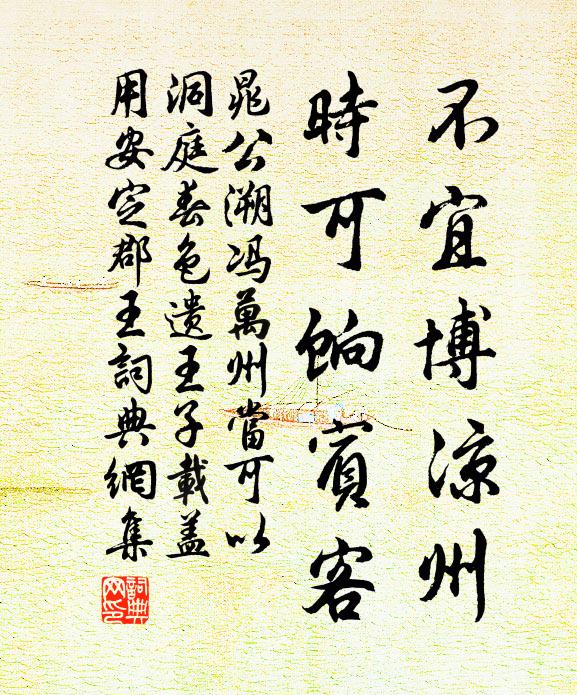 不宜博涼州
時可餉賓客
晁公溯馮萬州當可以
洞庭春色遺王子載蓋
用安定郡王詞典網集
詞典网印